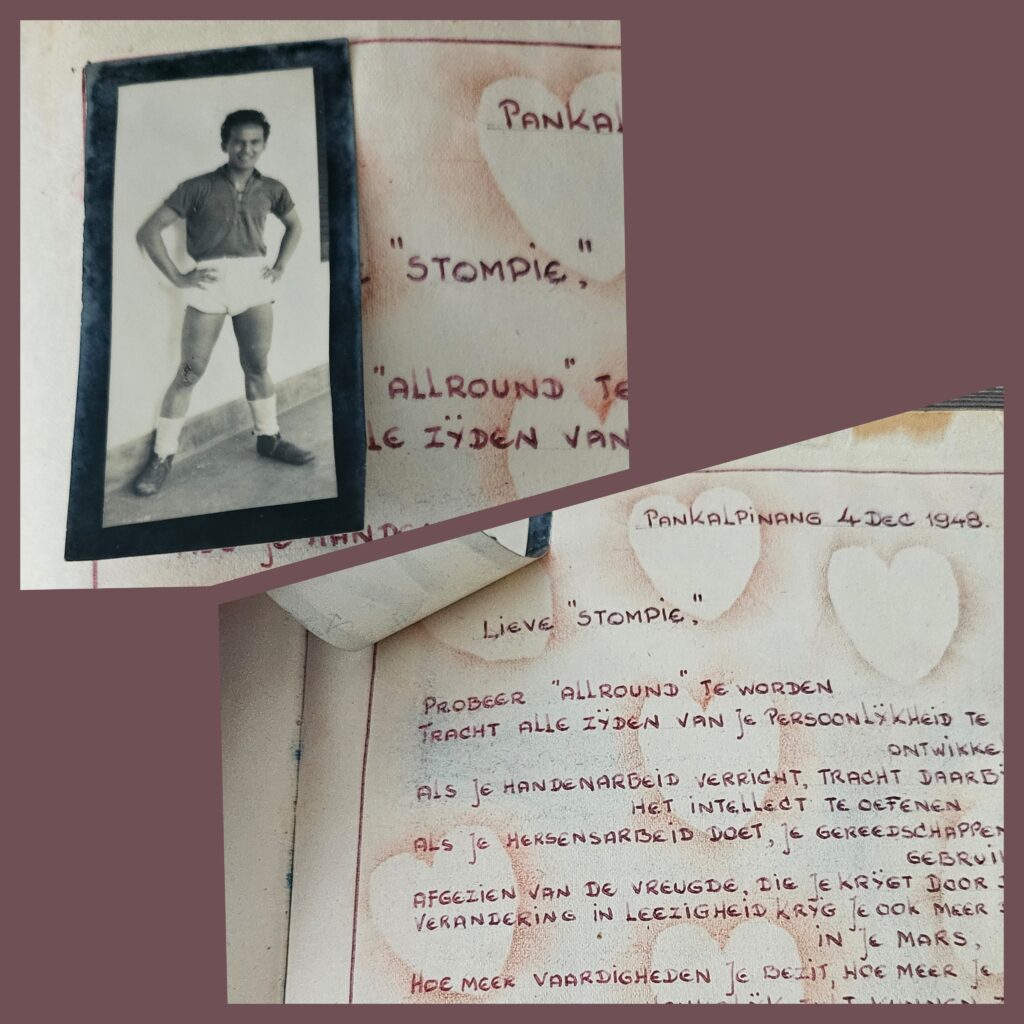 PANKAL
"STOMPIE,"
"ALLROUND" TE
LE ZŸDEN VAN
JE HANDE
PANKALPINANG 4 DEC 1948.
LIEVE "STOMPIE,"
PROBEER "ALLROUND" TE WORDEN
TRACHT ALLE ZŸDEN VAN JE PERSOONLŸKHEID TE
ONTWIKKE
ALS JE HANDENARBEID VERRICHT, TRACHT DAARBŸ
HET INTELLECT TE OEFENEN
ALS JE HERSENSARBEID DOET, JE GEREEDSCHAPPEN
GEBRUI
AFGEZIEN VAN DE VREUGDE, DIE JE KRŸGT DOOR
VERANDERING IN BEZIGHEID KRŸG JE OOK MEER
IN JE MARS,
HOE MEER VAARDIGHEDEN JE BEZIT, HOE MEER JE
KUNNEN